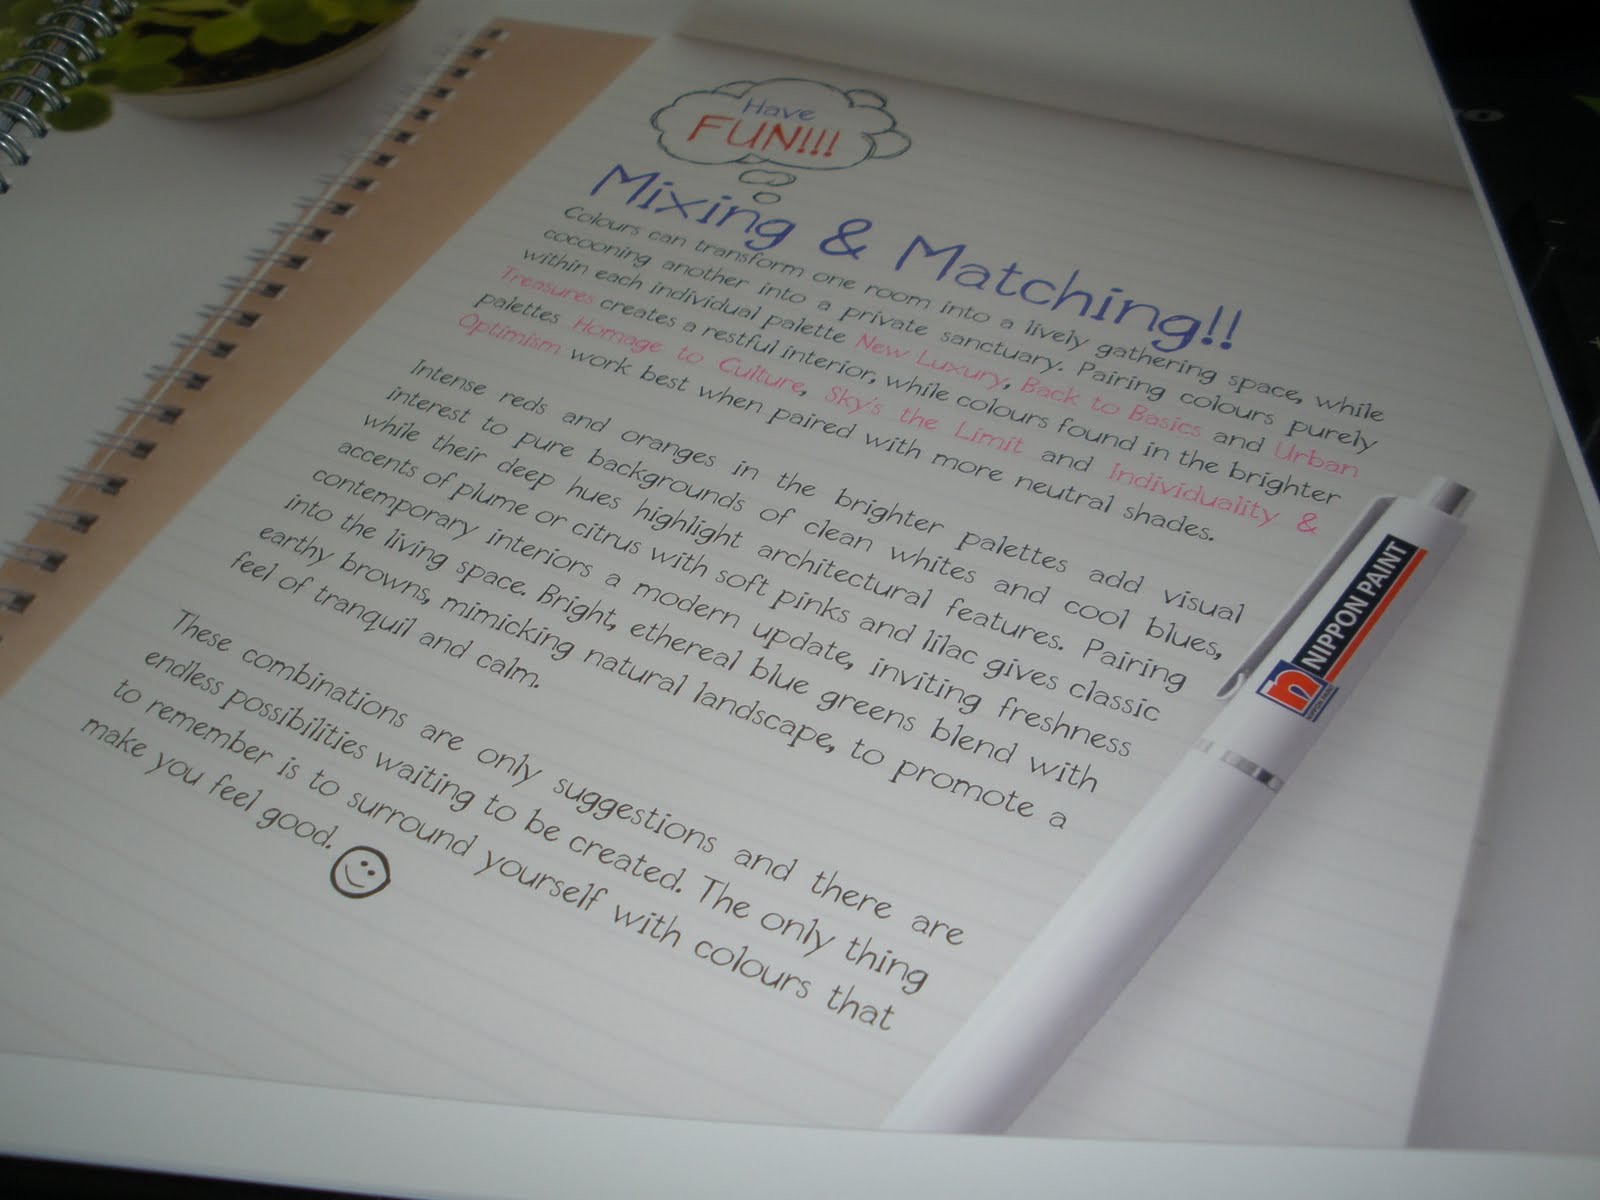 Have
FUN!!!
Mixing & Matching!!
Colours can transform one room into a lively gathering space, while
cocooning another into a private sanctuary. Pairing colours purely
within each individual palette New Luxury, Back to Basics and Urban
Treasures creates a restful interior, while colours found in the brighter
palettes Homage to Culture, Sky's the Limit and Individuality &
Optimism work best when paired with more neutral shades.
Intense reds and oranges in the brighter palettes add visual
interest to pure backgrounds of clean whites and cool blues,
while their deep hues highlight architectural features. Pairing
accents of plume or citrus with soft pinks and lilac gives classic
contemporary interiors a modern update, inviting freshness
into the living space. Bright, ethereal blue greens blend with
earthy browns, mimicking natural landscape, to promote a
feel of tranquil and calm.
These combinations are only suggestions and there are
endless possibilities waiting to be created. The only thing
to remember is to surround yourself with colours that
make you feel good.
n NIPPON PAINT
NIPPON PAINT